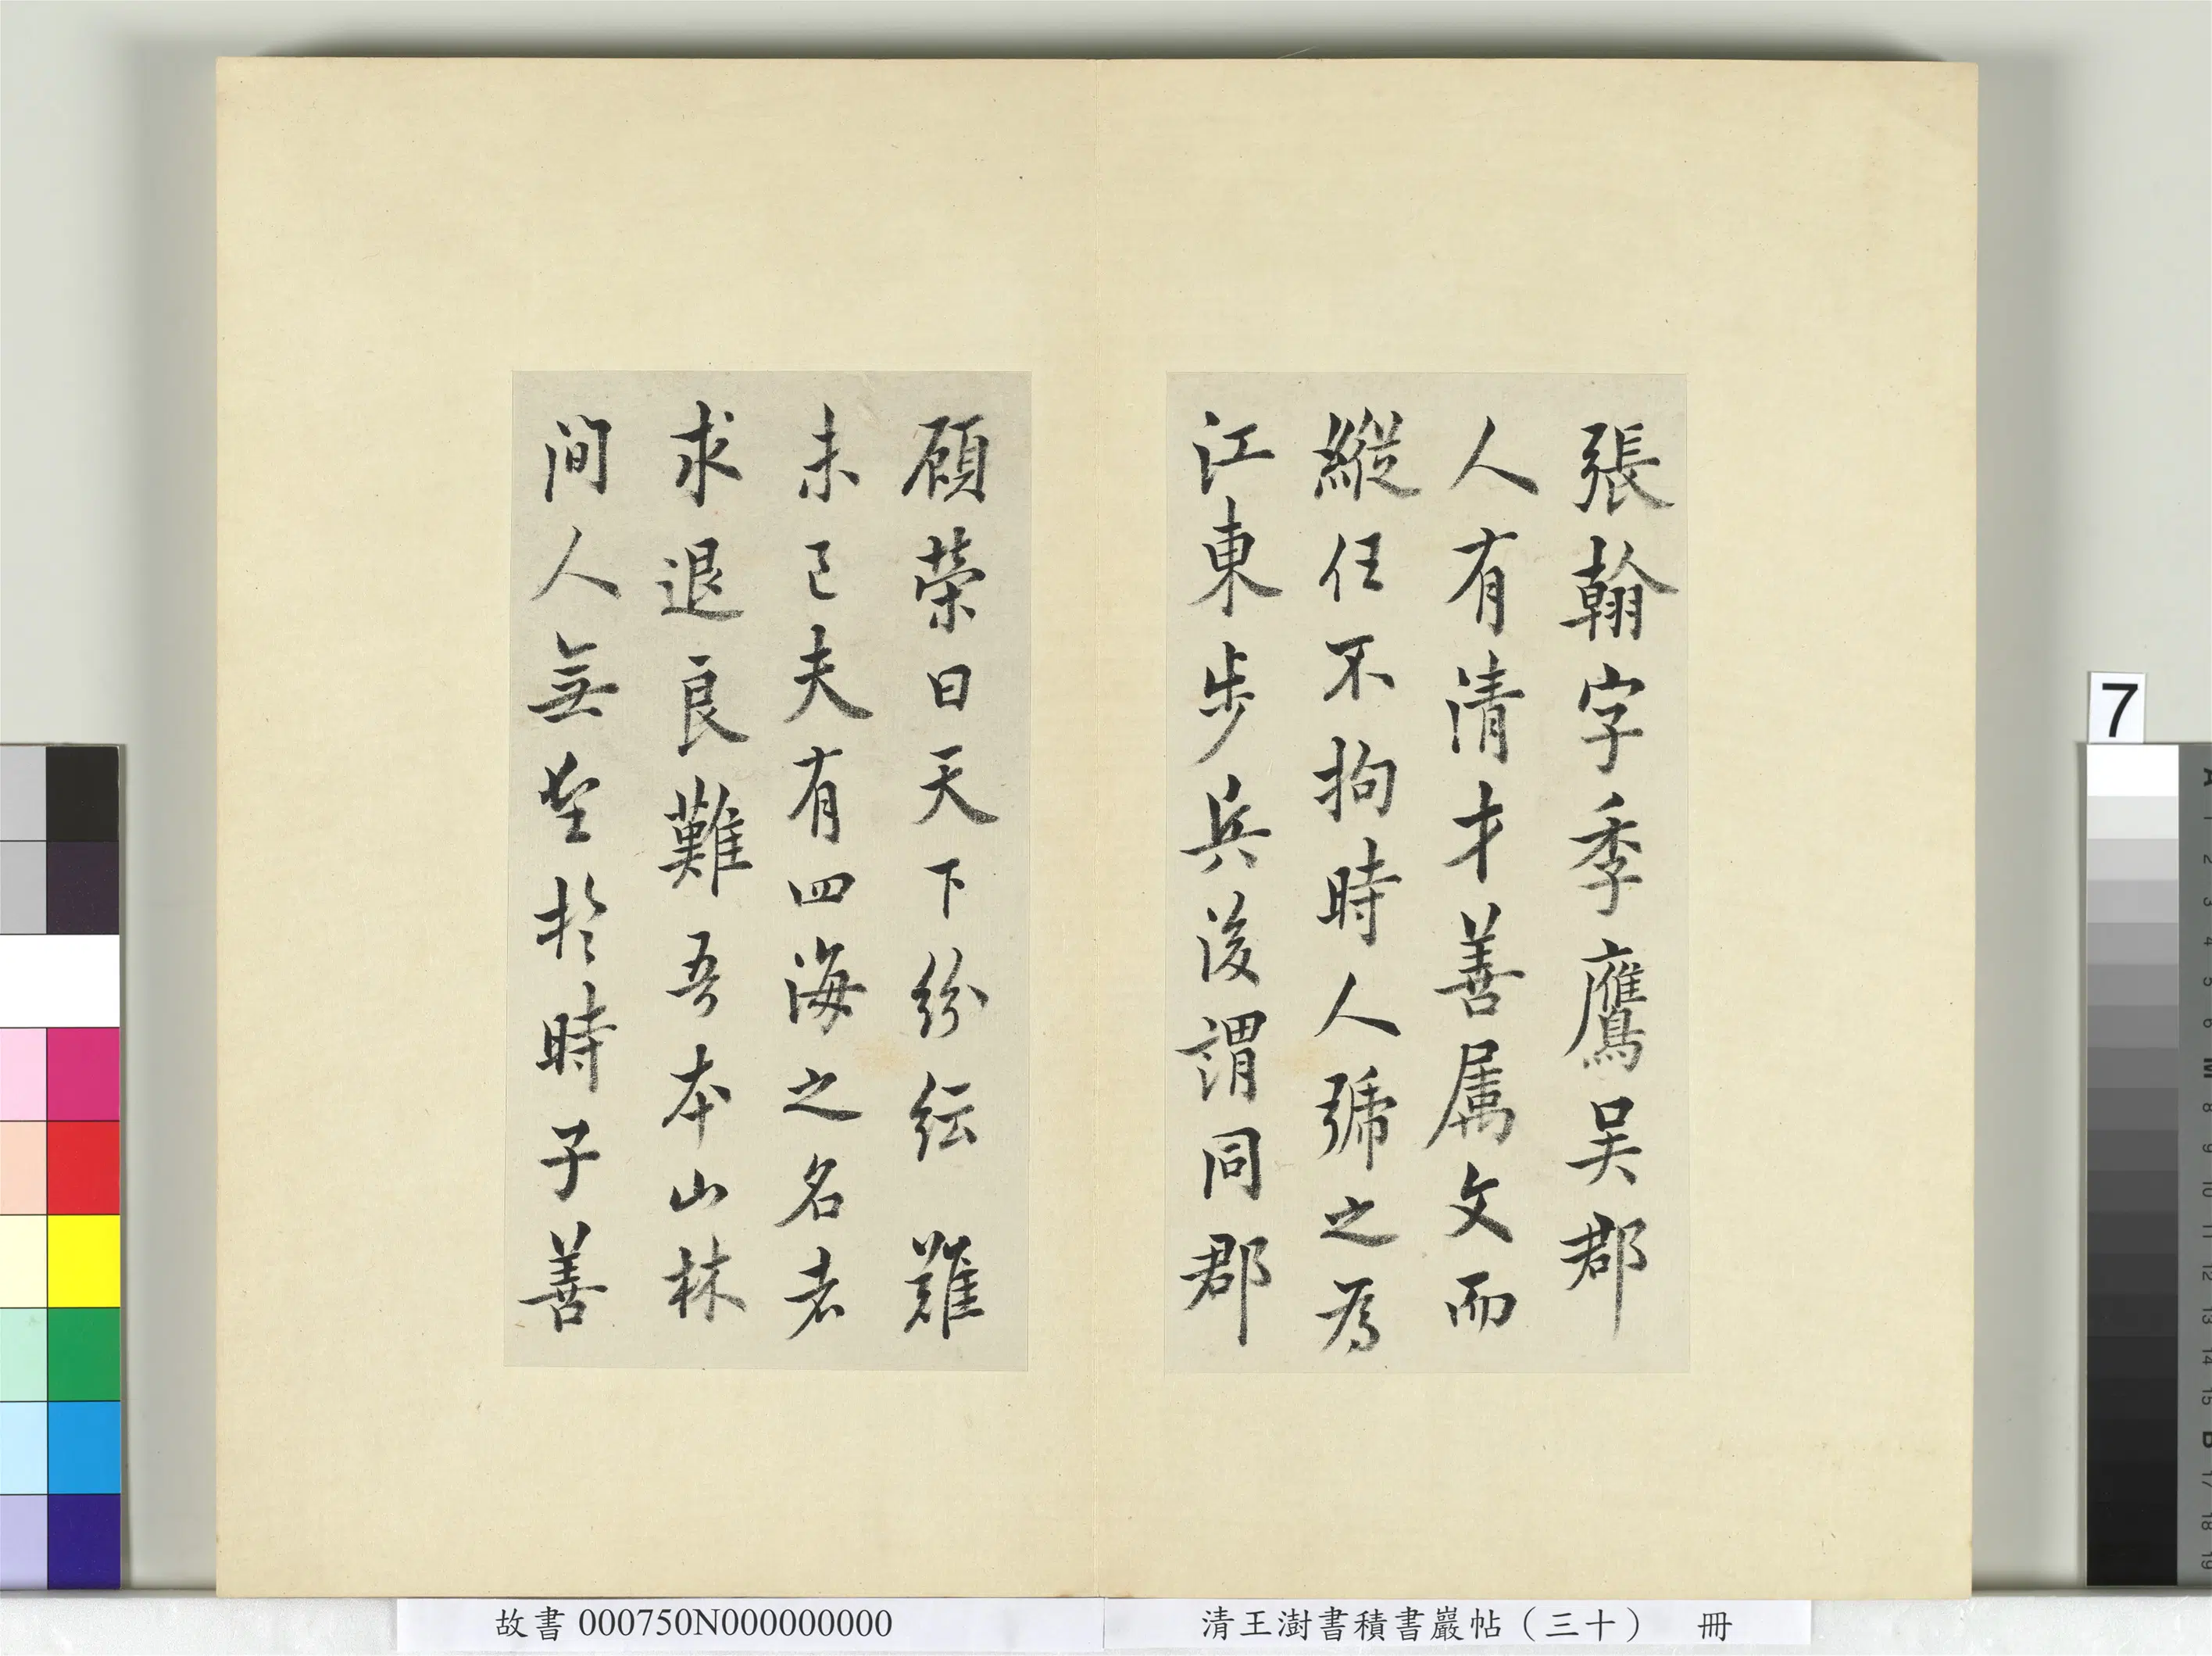 張翰字季鷹吳郡
人有清才善属文而
縱任不拘時人號之為
江東步兵後謂同郡
顧榮曰天下紛紜難
未已夫有四海之名者
求退良難吾本山林
间人無望於時子善
故書 000750N000000000
清王澍書積書巖帖（三十） 冊
7